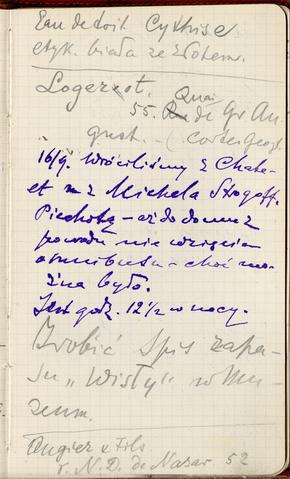 Eau de toil. Cythise
etyk. biała ze złotem.
Logerot.
Quai
55. de Gr Au-
gust. – (
16/9. Wróciliśmy z Chate-
et z Michela Strogoff.
Piechotą – aż do domu z
powodu nie wzięcia
omnibusu – choć mo-
żna było.
Jest godz. 12 1/2 w nocy.
Zrobić Spis zapa-
su „Wisły" w Mu-
zeum.
Angier & Fils
r. N. D. de Nazar. 52